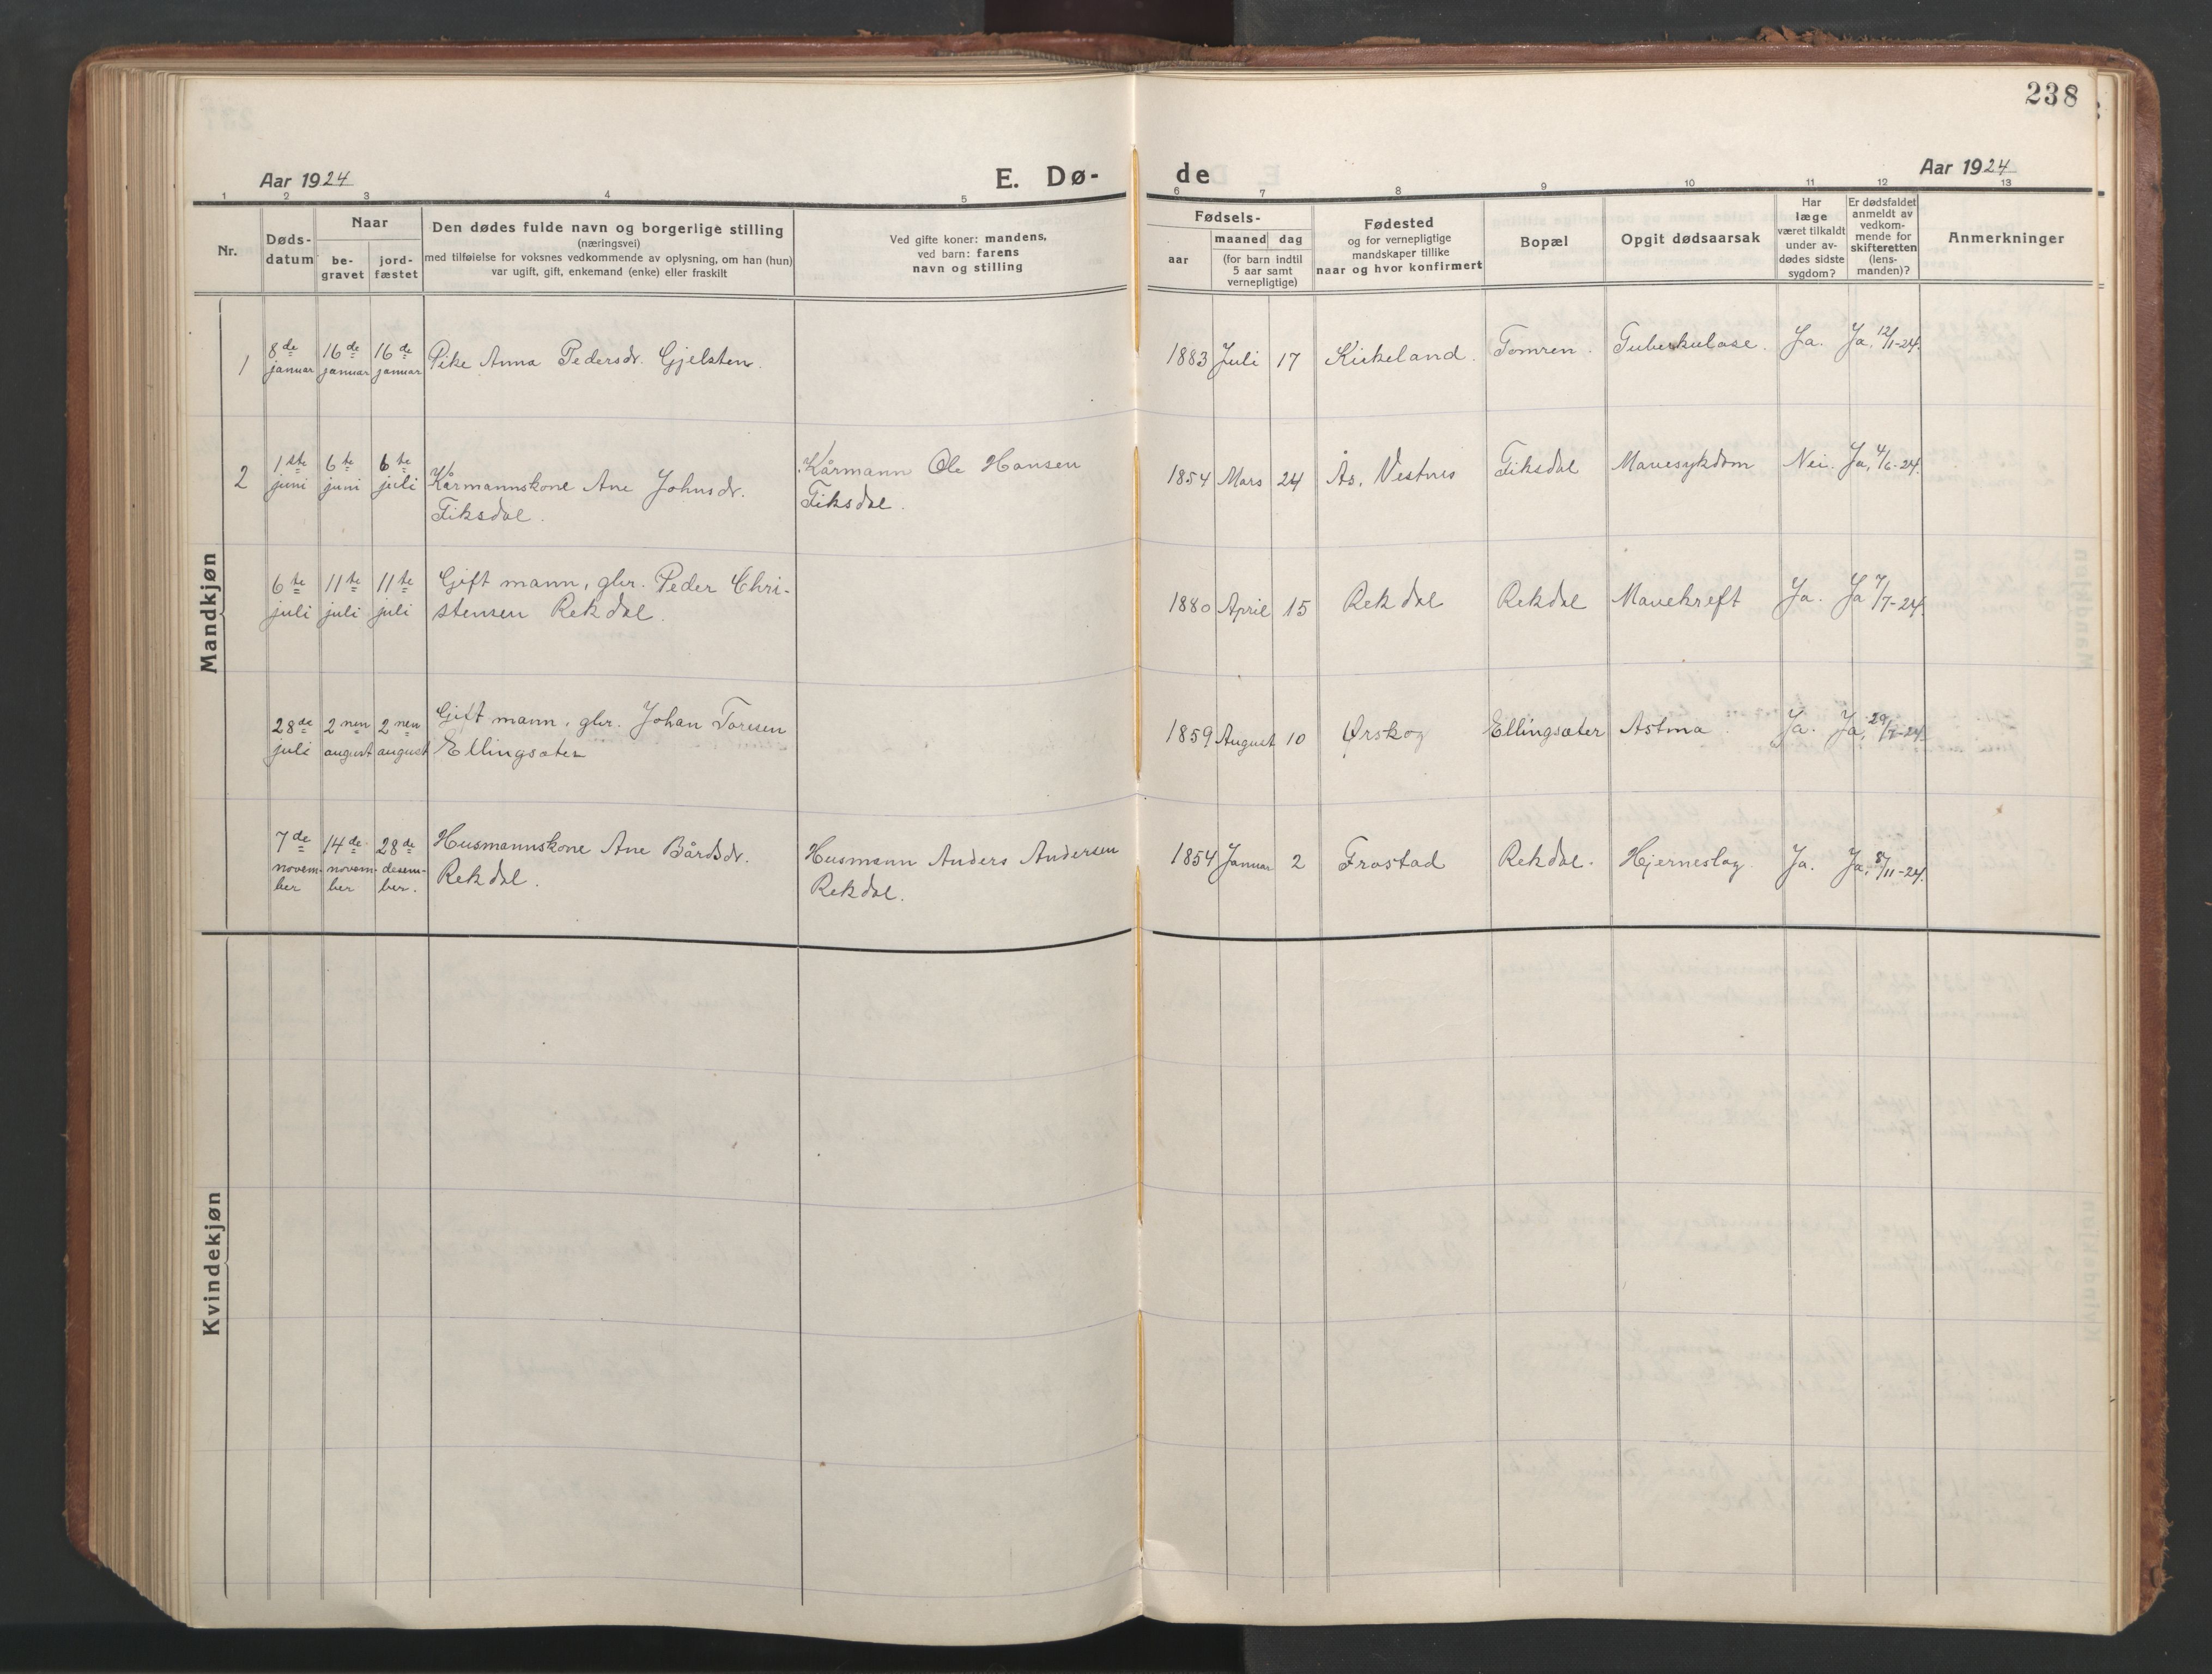 238
Aar 1924
E. Dø-
de
Aar 1924
1 2 3 4 5 6 7 8 9 10 11 12 13
Nr.
Døds-
datum
Naar
be-
gravet
jord-
fæstet
Den dødes fulde navn og borgerlige stilling
(næringsvei)
med tilføielse for voksnes vedkommende av oplysning, om han (hun)
var ugift, gift, enkemand (enke) eller fraskilt
Ved gifte koner: mandens,
ved barn: farens
navn og stilling
Fødsels-
aar
maaned dag
(for barn indtil
5 aar samt
vernepligtige)
Fødested
og for vernepligtige
mandskaper tillike
naar og hvor konfirmert
Bopæl
Opgit dødsaarsak
Har
læge
været tilkaldt
under av-
dødes sidste
sygdom?
Er dødsfaldet
anmeldt av
vedkom-
mende for
skifteretten
(lens-
manden)?
Anmerkninger
Mandkjøn
1
8de
januar
16de
januar
16de
januar
Pike Anna Pedersdr. Gjelsten.
1883 Juli 17 Kirkeland. Tomren. Tuberkulose. Ja. Ja, 12/1-24.
2
1ste
juni
6te
juni
6te
juli
Kårmannskone Ane Johnsdr.
Fiksdal.
Kårmann Ole Hansen
Fiksdal.
1854 Mars 24 Ås, Vestnes Fiksdal Mavesykdom Nei. Ja, 4/6-24.
6te
juli
11te
juli
11te
juli
Gift mann, gbr. Peder Chri-
stensen Rekdal.
1880 April 15 Rekdal Rekdal Mavekreft Ja. Ja 7/7-24.
28de
juli
2nen
august
2nen
august
Gift mann, gbr. Johan Toresen
Ellingsæter
1859 August 10 Ørskog Ellingsæter Astma. Ja. Ja, 29/7-24.
7de
novem-
ber
14de
novem-
ber
28de
desem-
ber.
Husmannskone Ane Bårdsdr.
Rekdal.
Husmann Anders Andersen
Rekdal.
1854 Januar 2 Frostad Rekdal. Hjerneslag. Ja. Ja, 8/11-24.
Kvindekjøn